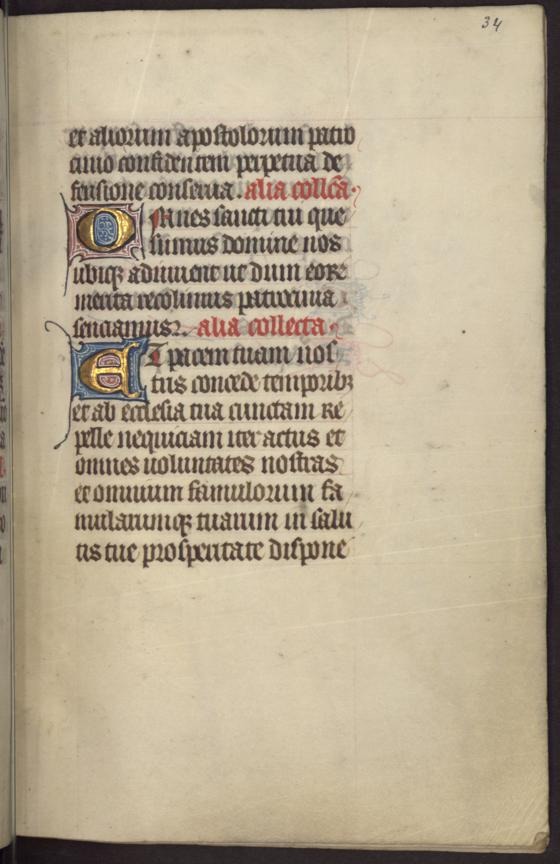 34
et aliorum apostolorum patro
cinio confidentem perpetua de
fensione conserua. alia coll̄ca.
Omnes sancti tui que
sumus domine nos
ubiq; adiuuent ut dum eorz
merita recolimus patrocinia
senciamus. alia collecta
Et pacem tuam nos
tris concede temporibz
et ab ecclesia tua cunctam re
pelle nequiciam iter actus et
omnes uoluntates nostras
et omnium famulorum fa
mularumq; tuarum in salu
tis tue prosperitate dispone